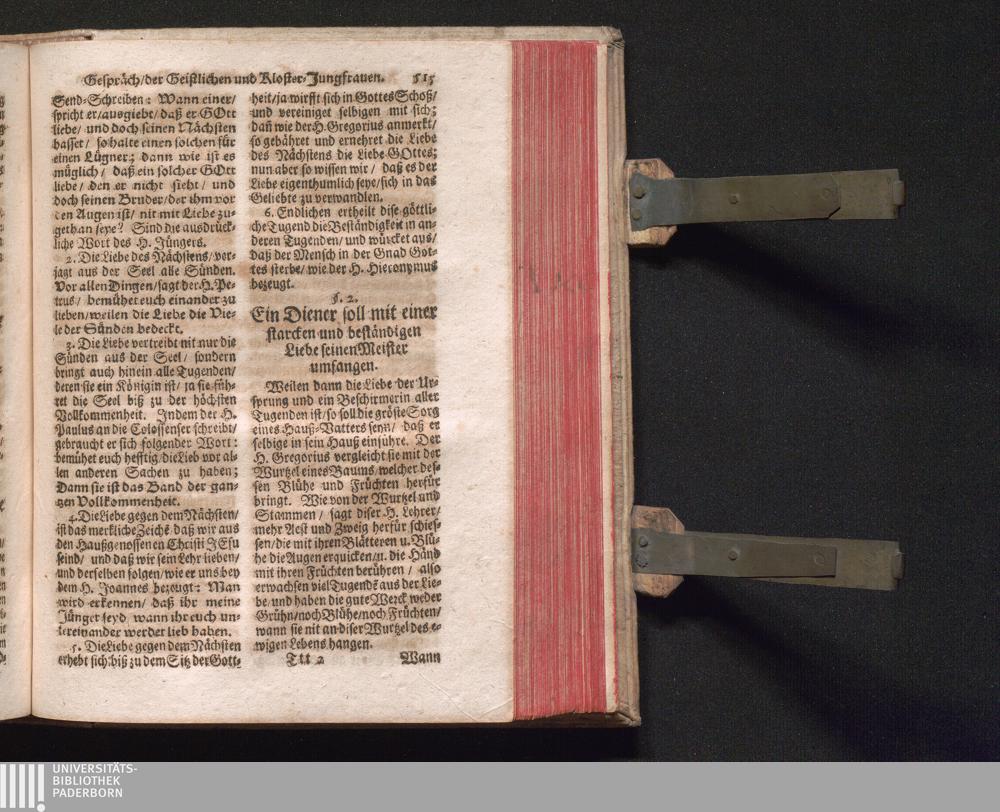 Gespräch/der Geistlichen und Kloster-Jungfrauen. 515
Send-Schreiben: Wann einer/
spricht er/ausgiebt/ daß er GOtt
liebe/ und doch seinen Nächsten
hasset/ so halte einen solchen für
einen Lügner; dann wie ist es
müglich/ daß ein solcher GOtt
liebe/ den er nicht sieht/ und
doch seinen Bruder/der ihm vor
den Augen ist/ nit mit Liebe zu-
gethan seye? Sind die ausdrück-
liche Wort des H. Jüngers.
2. Die Liebe des Nächstens/ver-
jagt aus der Seel alle Sünden.
Vor allen Dingen/sagt der H. Pe-
trus/ bemühet euch einander zu
lieben/weilen die Liebe die Vie-
le der Sünden bedeckt.
3. Die Liebe vertreibt nit nur die
Sünden aus der Seel/ sondern
bringt auch hinein alle Tugenden/
deren sie ein Königin ist/ ja sie füh-
ret die Seel biß zu der höchsten
Vollkommenheit. Indem der H.
Paulus an die Colossenser schreibt/
gebraucht er sich folgender Wort:
bemühet euch hefftig/die Lieb vor al-
len anderen Sachen zu haben;
Dann sie ist das Band der gan-
tzen Vollkommenheit.
4. Die Liebe gegen dem Nächsten/
ist das merkliche Zeichē daß wir aus
den Haußgenossenen Christi JEsu
seind/ und daß wir sein Lehr lieben/
und derselben folgen/wie er uns bey
dem H. Joannes bezeugt: Man
wird erkennen/ daß ihr meine
Jünger seyd, wann ihr euch un-
tereinander werdet lieb haben.
5. Die Liebe gegen dem Nächsten
erhebt sich biß zu dem Sitz der Gott-
heit/ja wirfft sich in Gottes Schoß/
und vereiniget selbigen mit sich;
dañ wie der H. Gregorius anmerkt/
so gebähret und ernehret die Liebe
des Nächstens die Liebe GOttes;
nun aber so wissen wir/ daß es der
Liebe eigenthumlich seye/sich in das
Geliebte zu verwandlen.
6. Endlichen ertheilt dise göttli-
che Tugend die Beständigkeit in an-
deren Tugenden/ und würcket aus/
daß der Mensch in der Gnad Got-
tes sterbe/ wie der H. Hieronymus
bezeugt.
§. 2.
Ein Diener soll mit einer
starcken und beständigen
Liebe seinen Meister
umfangen.
Weilen dann die Liebe der Ur-
sprung und ein Beschirmerin aller
Tugenden ist/so soll die gröste Sorg
eines Hauß-Vatters seyn/ daß er
selbige in sein Hauß einführe. Der
H. Gregorius vergleicht sie mit der
Wurtzel eines Baums, welcher des-
sen Blühe und Früchten herfür
bringt. Wie von der Wurtzel und
Stammen/ sagt diser H. Lehrer/
mehr Aest und Zweig herfür schies-
sen/die mit ihren Blätteren u. Blü-
he die Augen erquicken/u. die Händ
mit ihren Früchten berühren/ also
erwachsen viel Tugendē aus der Lie-
be/ und haben die gute Werck weder
Grühn/noch Blühe/noch Früchten/
wann sie nit an diser Wurtzel des e-
wigen Lebens hangen.
Ttt 2 Wann
UNIVERSITÄTS-
BIBLIOTHEK
PADERBORN